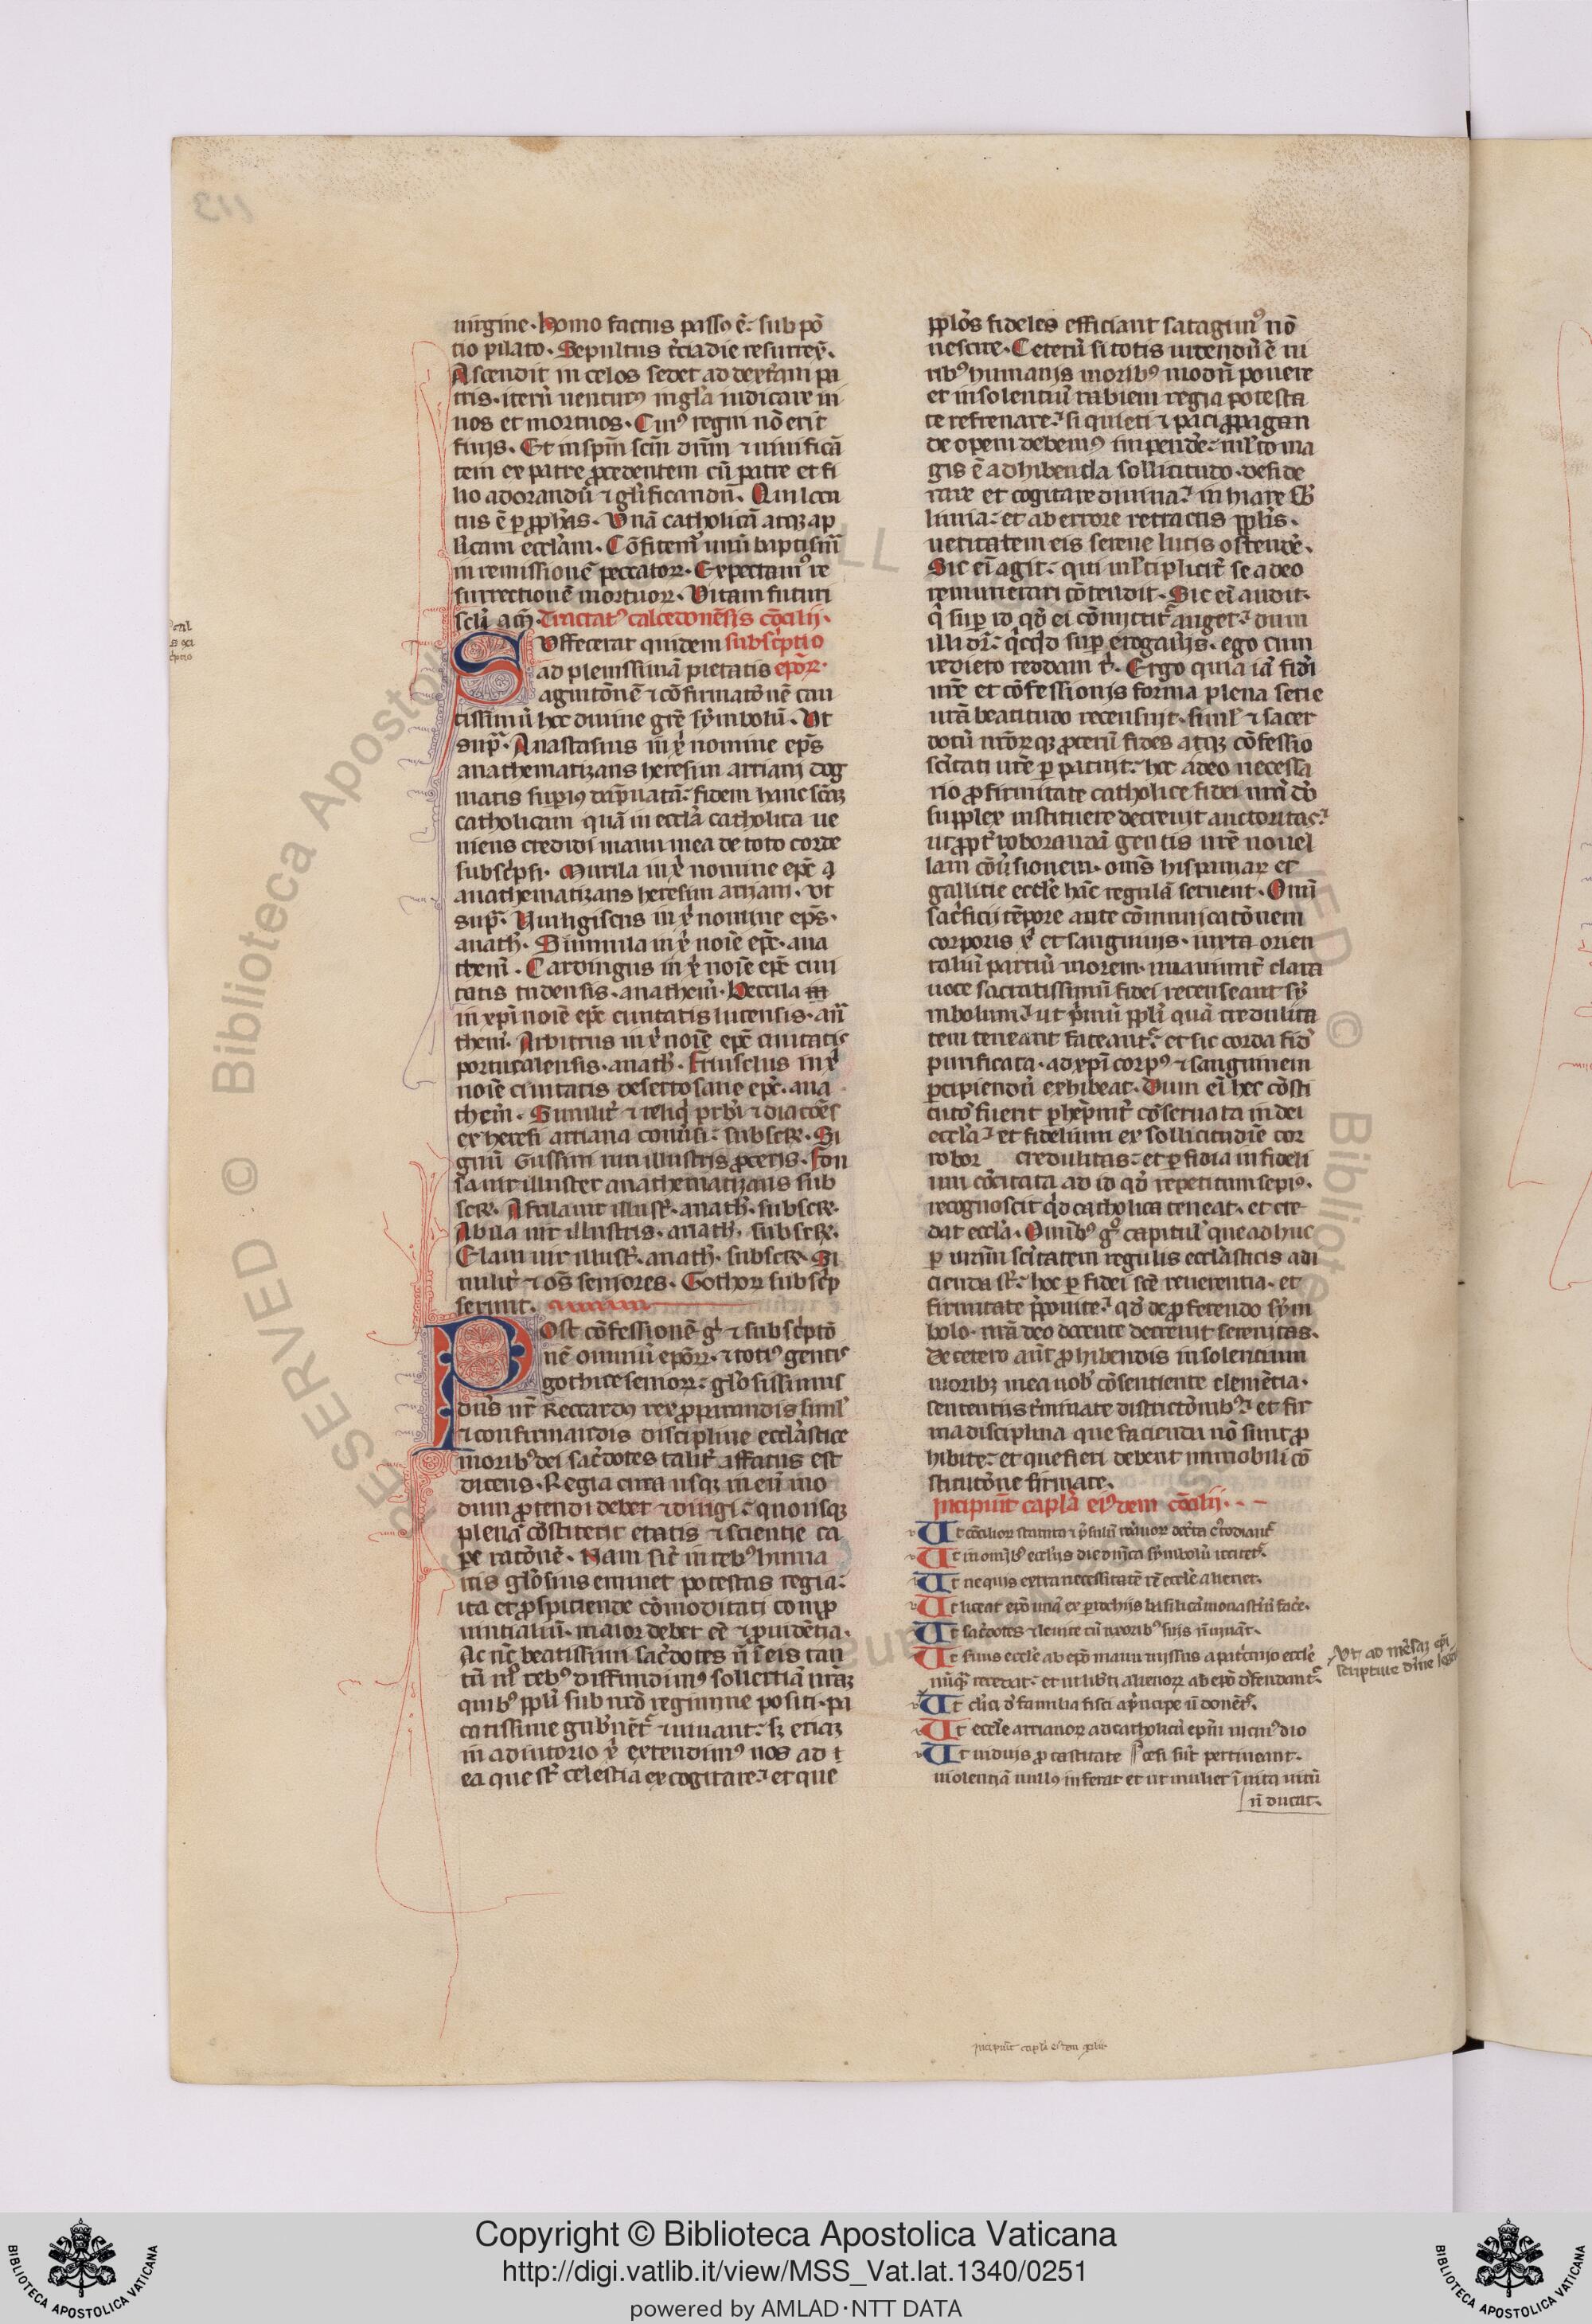 uirgine. homo factus passꝰ ē. sub pō
tio pilato. Sepultus t̄cia die resurrex̄.
Ascendit in celos sedet ad dexteram pa
tris. iterū uenturꝰ in gl̄a iudicare ui
uos et mortuos. Cuiꝰ regni nō erit
finis. Et in sp̄m sc̄m dn̄m ⁊ uiuificā
tem ex patre ꝓcedentem cū patre et fi
lio adorandū ⁊ gl̄ificandū. Qui locu
tus ē ꝑ ꝓphās. Vnā catholicā atqꝫ ap
l̄icam eccl̄am. Cōfitemꝰ unū baptism̄
in remissionē peccatoꝝ. Expectamꝰ re
surrectionē mortuoꝝ. Vitam futuri
sc̄li am̄. Tractatꝰ calcedonēsis cōcilii.
Suffecerat quidem subscͥptio
ad plenissimā pietatis ep̄oꝝ.
agnitōnē ⁊ cōfirmatōnē cau
tissimū hec diuine gr̄e sȳmbolū. Vt
supͣ. Anastasius in xͥ nomine ep̄s
anathematizans heresim arriani dog
matis supiꝰ dāpnatā. fidem hanc sc̄aꝫ
catholicam quā in eccl̄a catholica ue
niens credidi manu mea de toto corde
subscͥpsi. Murila in xͥ nomine ep̄c q̄
anathematizans heresim arrianā. vt
supͣ. Vuiligiscus in xͥ nomine ep̄s.
anath̄. Diumila in xͥ noīe ep̄c. ana
them̄. Cardingus in xͥ noīe ep̄c ciui
tatis tudensis. anathem̄. Beccila in
in xp̄i noīe ep̄c ciuitatis lucensis. an̄
them̄. Arbitrus in xͥ noīe ep̄c ciuitatis
portucalensis. anath̄. Friusclus in xͥ
noīe ciuitatis desertosane ep̄c. ana
them̄. Similit̄ ⁊ reliqͥ pr̄b̄i ⁊ diacōes
ex heresi arriana conuersi. subscꝝ.
Si
gnū Gussini uiri illustris ꝓceris. Fon
sa uir illuster anathematizans sub
scꝝ. Afrila uir illustr̄. anath̄. subscꝝ.
Abila uir illustris. anath̄. subscꝝ.
Elam uir illustr̄. anath̄. subscꝝ. Si
milit̄ ⁊ oēs seniores. Gothoꝝ subscͥp
serunt.
Post cōfessionē gͥ ⁊ subscͥptō
nē omniū ep̄oꝝ. ⁊ totiꝰ gentis
gothice senioꝝ. gl̄osissimus
dn̄s nr̄ Reccardꝰ rex ꝓ parandis simul
⁊ confirmandis discipline eccl̄astice
moribꝰ dei sac̄dotes talit̄ affatus est
dicens. Regia cura usqꝫ in eū mo
dum ꝓtendi debet ⁊ dirigi. quousqꝫ
plenā cōstiterit etatis ⁊ scientie ca
pe ratōnē. Nam sic̄ in rebꝰ huma
nis gl̄osius eminet potestas regia.
ita et ꝓspiciende cōmoditati comꝓ
uincialiū. maior debet eē ⁊ ꝓuidētia.
Ac nūc beatissimi sac̄dotes n̄ ī eis tan
tū nr̄ rebꝰ diffundimꝰ sollertiā nr̄aꝫ
quibꝰ ppl̄i sub nr̄o regimine positi. pa
catissime gub̄nēt̄ ⁊ uiuant. sꝫ etiaꝫ
in adiutorio xͥ extendimꝰ nos ad ī
ea que st̄ celestia excogitare. et que
ppl̄os fideles efficiant satagimꝰ nō
nescire. Ceterū si totis nitendū ē ui
ribꝰ humanis moribꝰ modū ponere
et insolentiū rabiem regia potesta
te refrenare. si quieti ⁊ paci ꝓpagan
de opem debemꝰ impendere. ml̄to ma
gis ē adhibenda sollicitudo. deside
rare et cogitare diuina. inhiare sub
limia. et ab errore retractis ppl̄is.
ueritatem eis serene lucis ostende.
Sic ei agit. qui ml̄tiplicit̄ se a deo
remunerari cōtendit. Sic ei audit.
qͥ supͣ id qͦd ei cōmictit̄ auget. dum
illi dr̄. qͥcqͥd sup erogaueris. ego cum
rediero reddam tͥ. Ergo quia iā fidei
nr̄e et cōfessionis forma plena serie
ur̄a beatitudo recensuit. simul ⁊ sacer
dotū nr̄oꝝqꝫ ꝓcerū fides atqꝫ cōfessio
sc̄itati ur̄e ꝑ patuit. hec adeo necessa
rio ꝓ firmitate catholice fidei nr̄a dō
supplex instituere decreuit auctoritas.
ut ꝓpt̄ roborandā gentis nr̄e nouel
lam cōuersionem. oms̄ hispaniaꝝ et
gallicie eccl̄e hāc regulā seruent. Om̄i
sac̄ficii tēpore ante cōmunicatōnem
corporis xͥ et sanguinis. iuxta orien
taliū partiū morem. unanimit̄ clara
uoce sacratissimū fidei recenseant sȳ
mbolum. ut pͥmū ppl̄i quā credulita
tem teneant fateant̄. et sic corda fide
purificata. ad xp̄i corpꝰ ⁊ sanguinem
ꝑcipiendū exhibeat. Dum ei hec cōsti
tutō fuerit ꝑhēpnit̄ cōseruata in dei
eccl̄a. et fidelium ex sollicitudīe cor
robor credulitas. et ꝑfidia infideli
um cōcitata ad id qͦd repetitum sepiꝰ.
recognoscit qͦd catholica teneat. et cre-
dat eccl̄a. Omibꝰ gͦ capitul̄ que adhuc
ꝑ ur̄am sc̄itatem regulis eccl̄asticis adi
cienda st̄. hoc ꝑ fidei sc̄e reuerentia. et
firmitate p̄ponite. qͦd de ꝓferendo sȳm
bolo. nr̄a deo docente decreuit serenitas.
De cetero aūt ꝓhibendis insolentium
moribꝫ mea uob̄ cōsentiente clemētia.
sententiis t̄minate districtōibꝰ. et fir
ma disciplina que facienda nō sunt ꝓ
hibite. et que fieri debent immobili cō
stitutōne firmate.
Incipiūt capl̄a eiꝰdem cōcilii.
Ut cōcilioꝝ statuta ⁊ p̄sulū romanoꝝ decreta cꝰtodiant̄
Ut in omibꝰ eccl̄iis die dn̄ica sȳmbolū recitet̄.
Ut ne quis extra necessitatē rē eccl̄e alienet.
Ut liceat ep̄o unā ex ꝑrochiis basilicā monasteriū facͤe.
Ut sac̄dotes ⁊ leuite cū uxoribꝰ suis n̄ uiuāt.
Ut seruus eccl̄e ab ep̄o manumissus a patͦcinio eccl̄e
nūqͣ recedat. et ut lib̄ti alienoꝝ ab ep̄o defendant̄.
Ut cl̄ici d̄ familia fisci a pͥncipe n̄ donēt̄.
Ut eccl̄e arrianoꝝ ad catholicū ep̄m uicinꝰ dio
Ut uiduis ꝓ castitate cesi sūt pertineant.
uiolentiā nullꝰ inferat et ut mulier īuita uirū
n̄ ducat.
Vt ad mēsaꝫ ep̄i
scripture diuine leg
Incipiūt capl̄a eiusdem cōcilii
Copyright © Biblioteca Apostolica Vaticana
http://digi.vatlib.it/view/MSS_Vat.lat.1340/0251
powered by AMLAD·NTT DATA
BIBLIOTECA APOSTOLICA VATICANA
BIBLIOTECA APOSTOLICA VATICANA